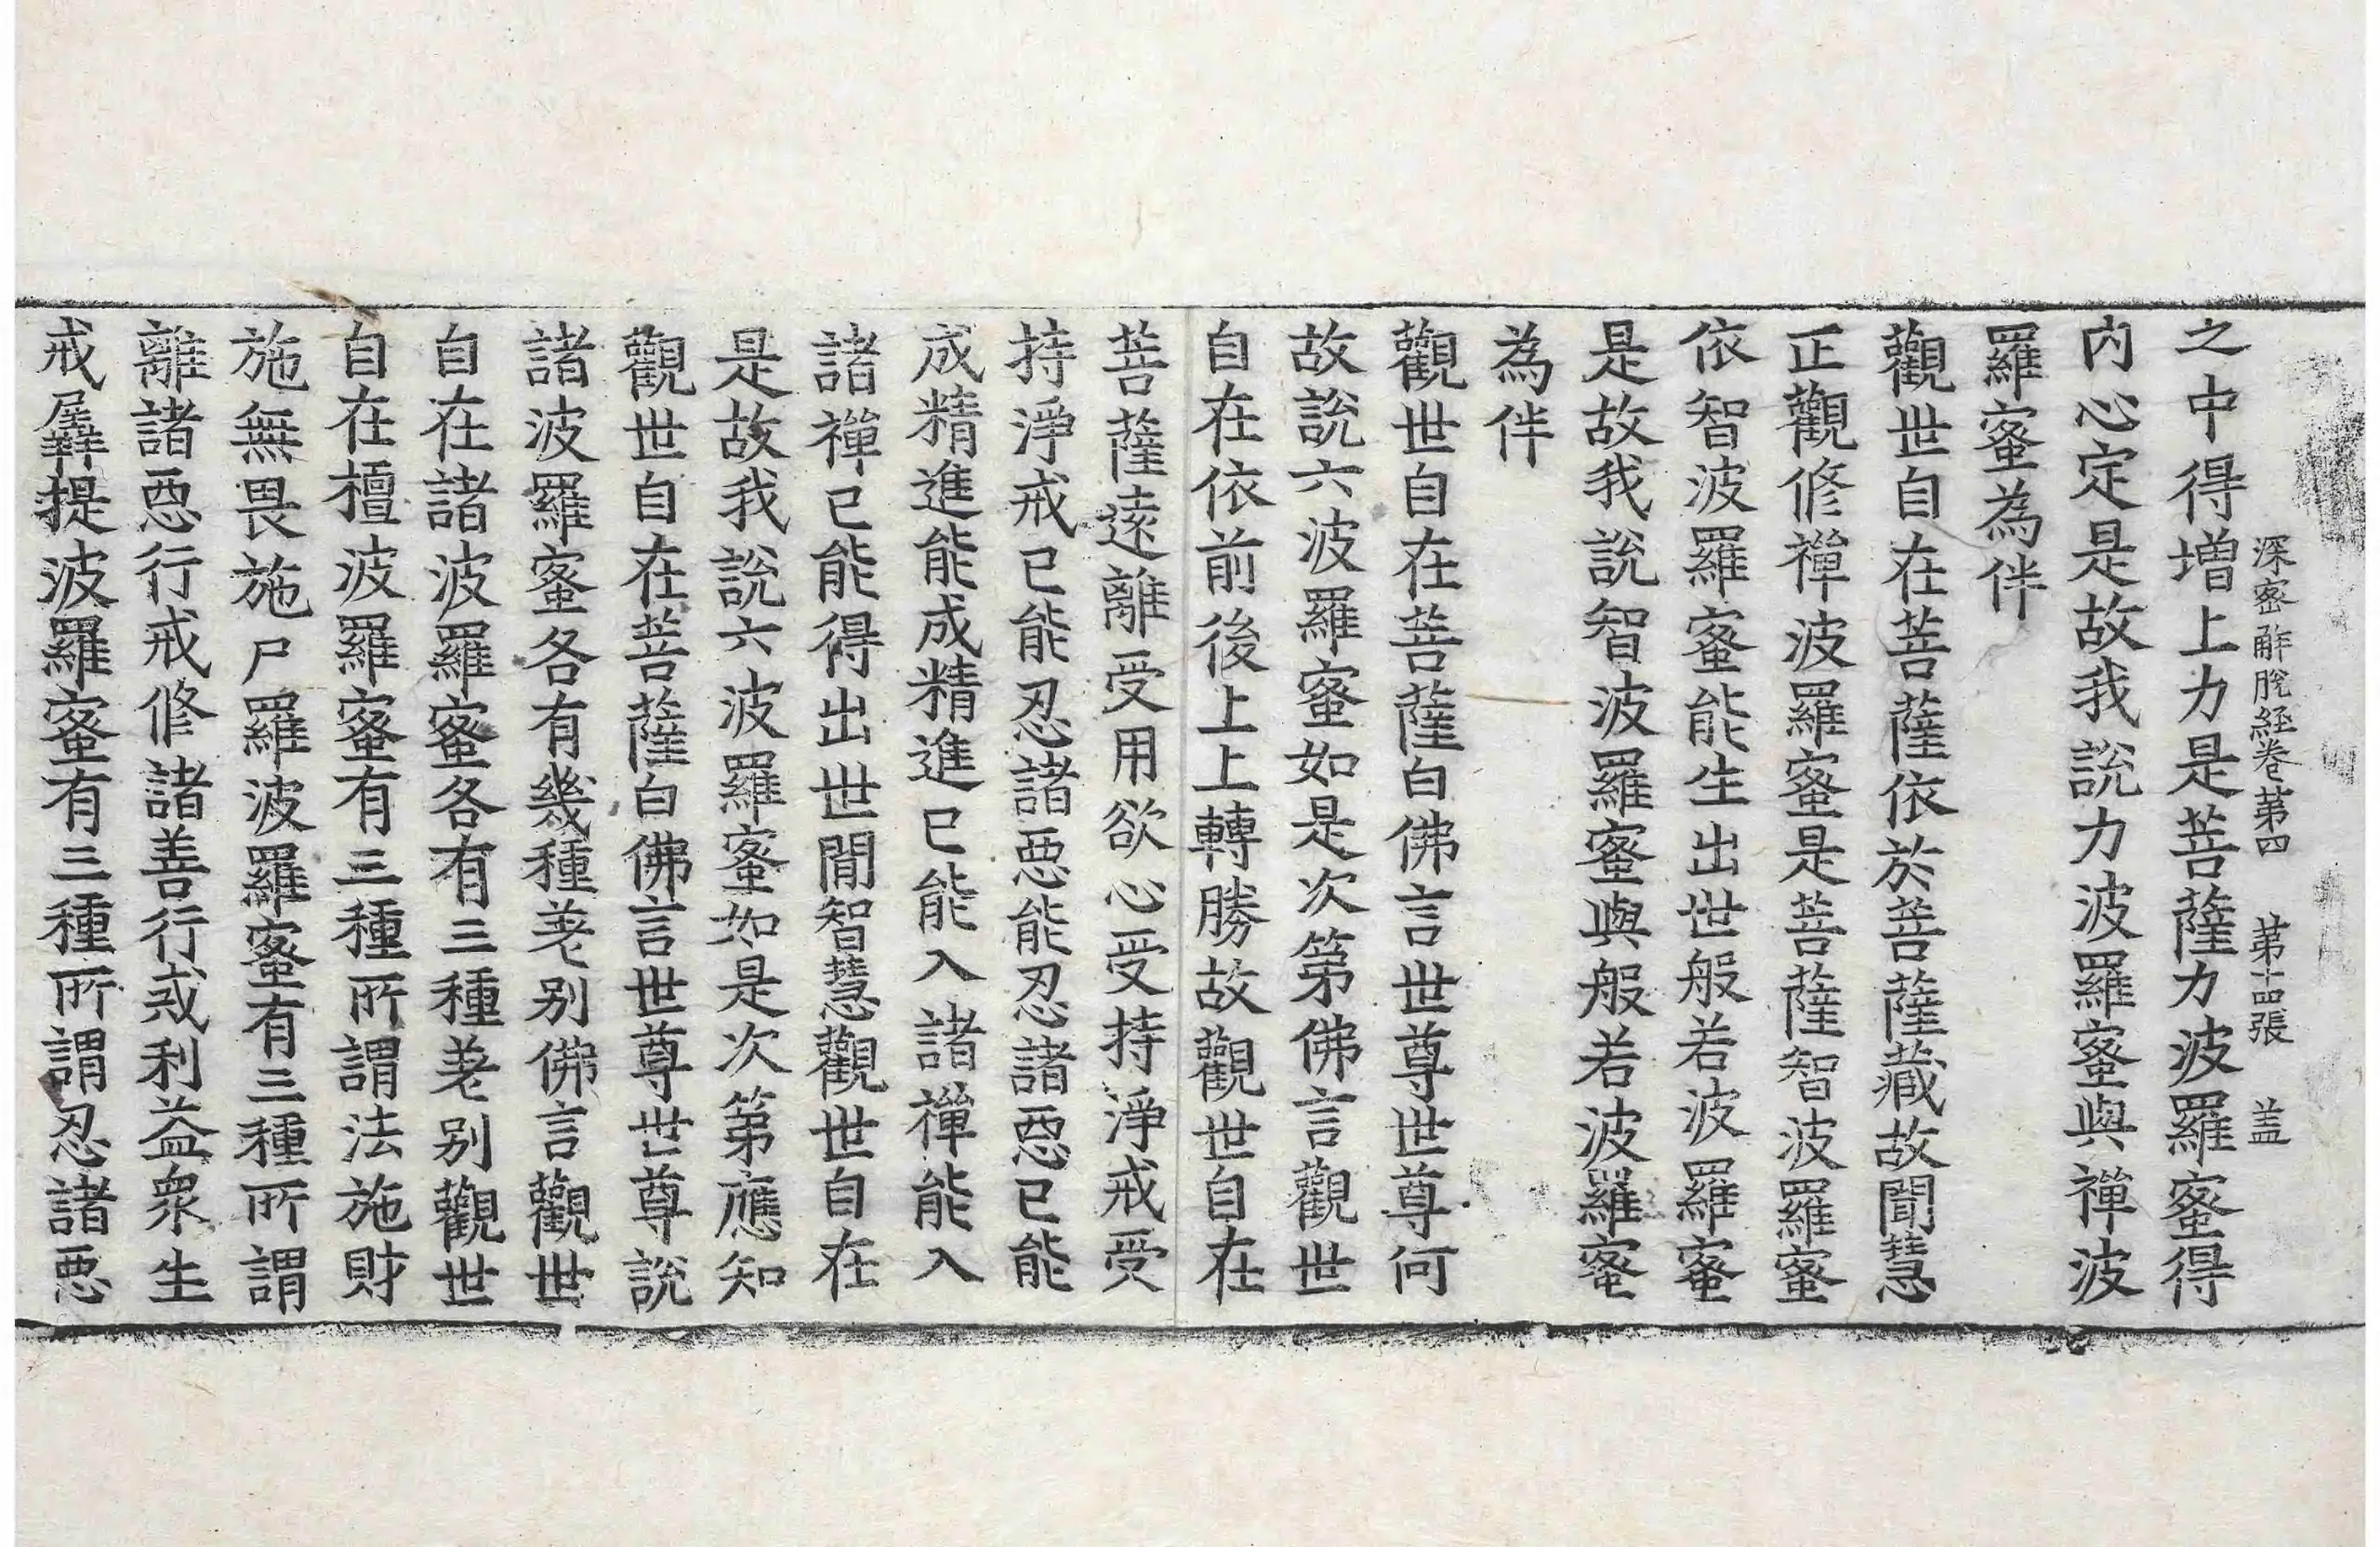 深密解脫經卷第四　第十四張　盖
之中得增上力是菩薩力波羅蜜得
内心定是故我說力波羅蜜與禪波
羅蜜為伴
觀世自在菩薩依於菩薩藏故聞慧
正觀修禪波羅蜜是菩薩智波羅蜜
依智波羅蜜能生出世般若波羅蜜
是故我說智波羅蜜與般若波羅蜜
為伴
觀世自在菩薩白佛言世尊世尊何
故說六波羅蜜如是次第佛言觀世
自在依前後上上轉勝故觀世自在
菩薩遠離受用欲心受持淨戒受
持淨戒已能忍諸惡能忍諸惡已能
成精進能成精進已能入諸禪能入
諸禪已能得出世間智慧觀世自在
是故我說六波羅蜜如是次第應知
觀世自在菩薩白佛言世尊世尊說
諸波羅蜜各有幾種差别佛言觀世
自在諸波羅蜜各有三種差别觀世
自在檀波羅蜜有三種所謂法施財
施無畏施尸羅波羅蜜有三種所謂
離諸惡行戒修諸善行戒利益衆生
戒羼提波羅蜜有三種所謂忍諸惡